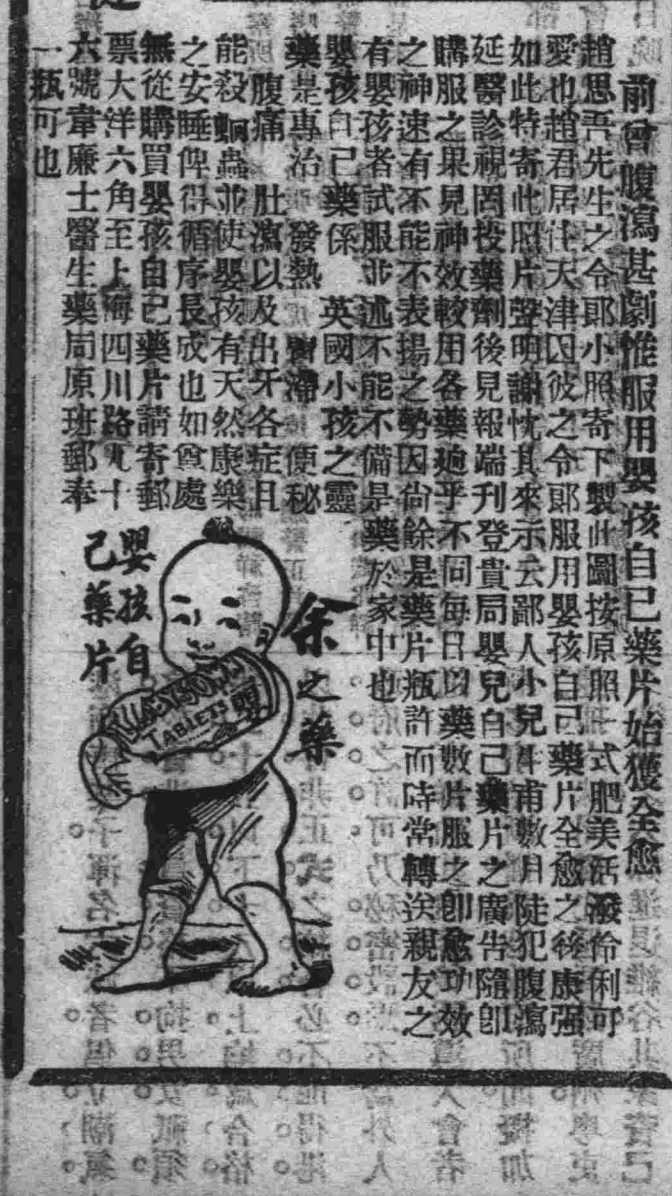 前曾腹瀉甚劇惟服用嬰孩自己藥片始獲全愈
趙思吾先生之令郎小照寄下製此圖按原照一式肥美活潑伶俐可
愛也趙君居住天津因彼之令郎服用嬰孩自己藥片全愈之後康强
如此特寄此照片聲明謝忱其來示云鄙人小兒年甫數月陡犯腹瀉
延醫診視罔投藥劑後見報端刊登貴局嬰兒自己藥片之廣告隨卽
購服之果見神效較用各藥迥乎不同每日四藥數片服之卽愈功效
之神速有不能不表揚之勢因尙餘是藥片瓶許而時常轉送親友之
有嬰孩者試服並述不能不備是藥於家中也
嬰孩自己藥係 英國小孩之靈
藥是專治 發熱 胃滯 便秘
腹痛 肚瀉以及出牙各症且
能殺蛔蟲並使嬰孩有天然康樂
之安睡俾得循序長成也如尊處
無從購買嬰孩自己藥片請寄郵
票大洋六角至上海四川路九十
六號韋廉士醫生藥局原班郵奉
一瓶可也
余之藥
嬰孩自
己藥片
TABLETS